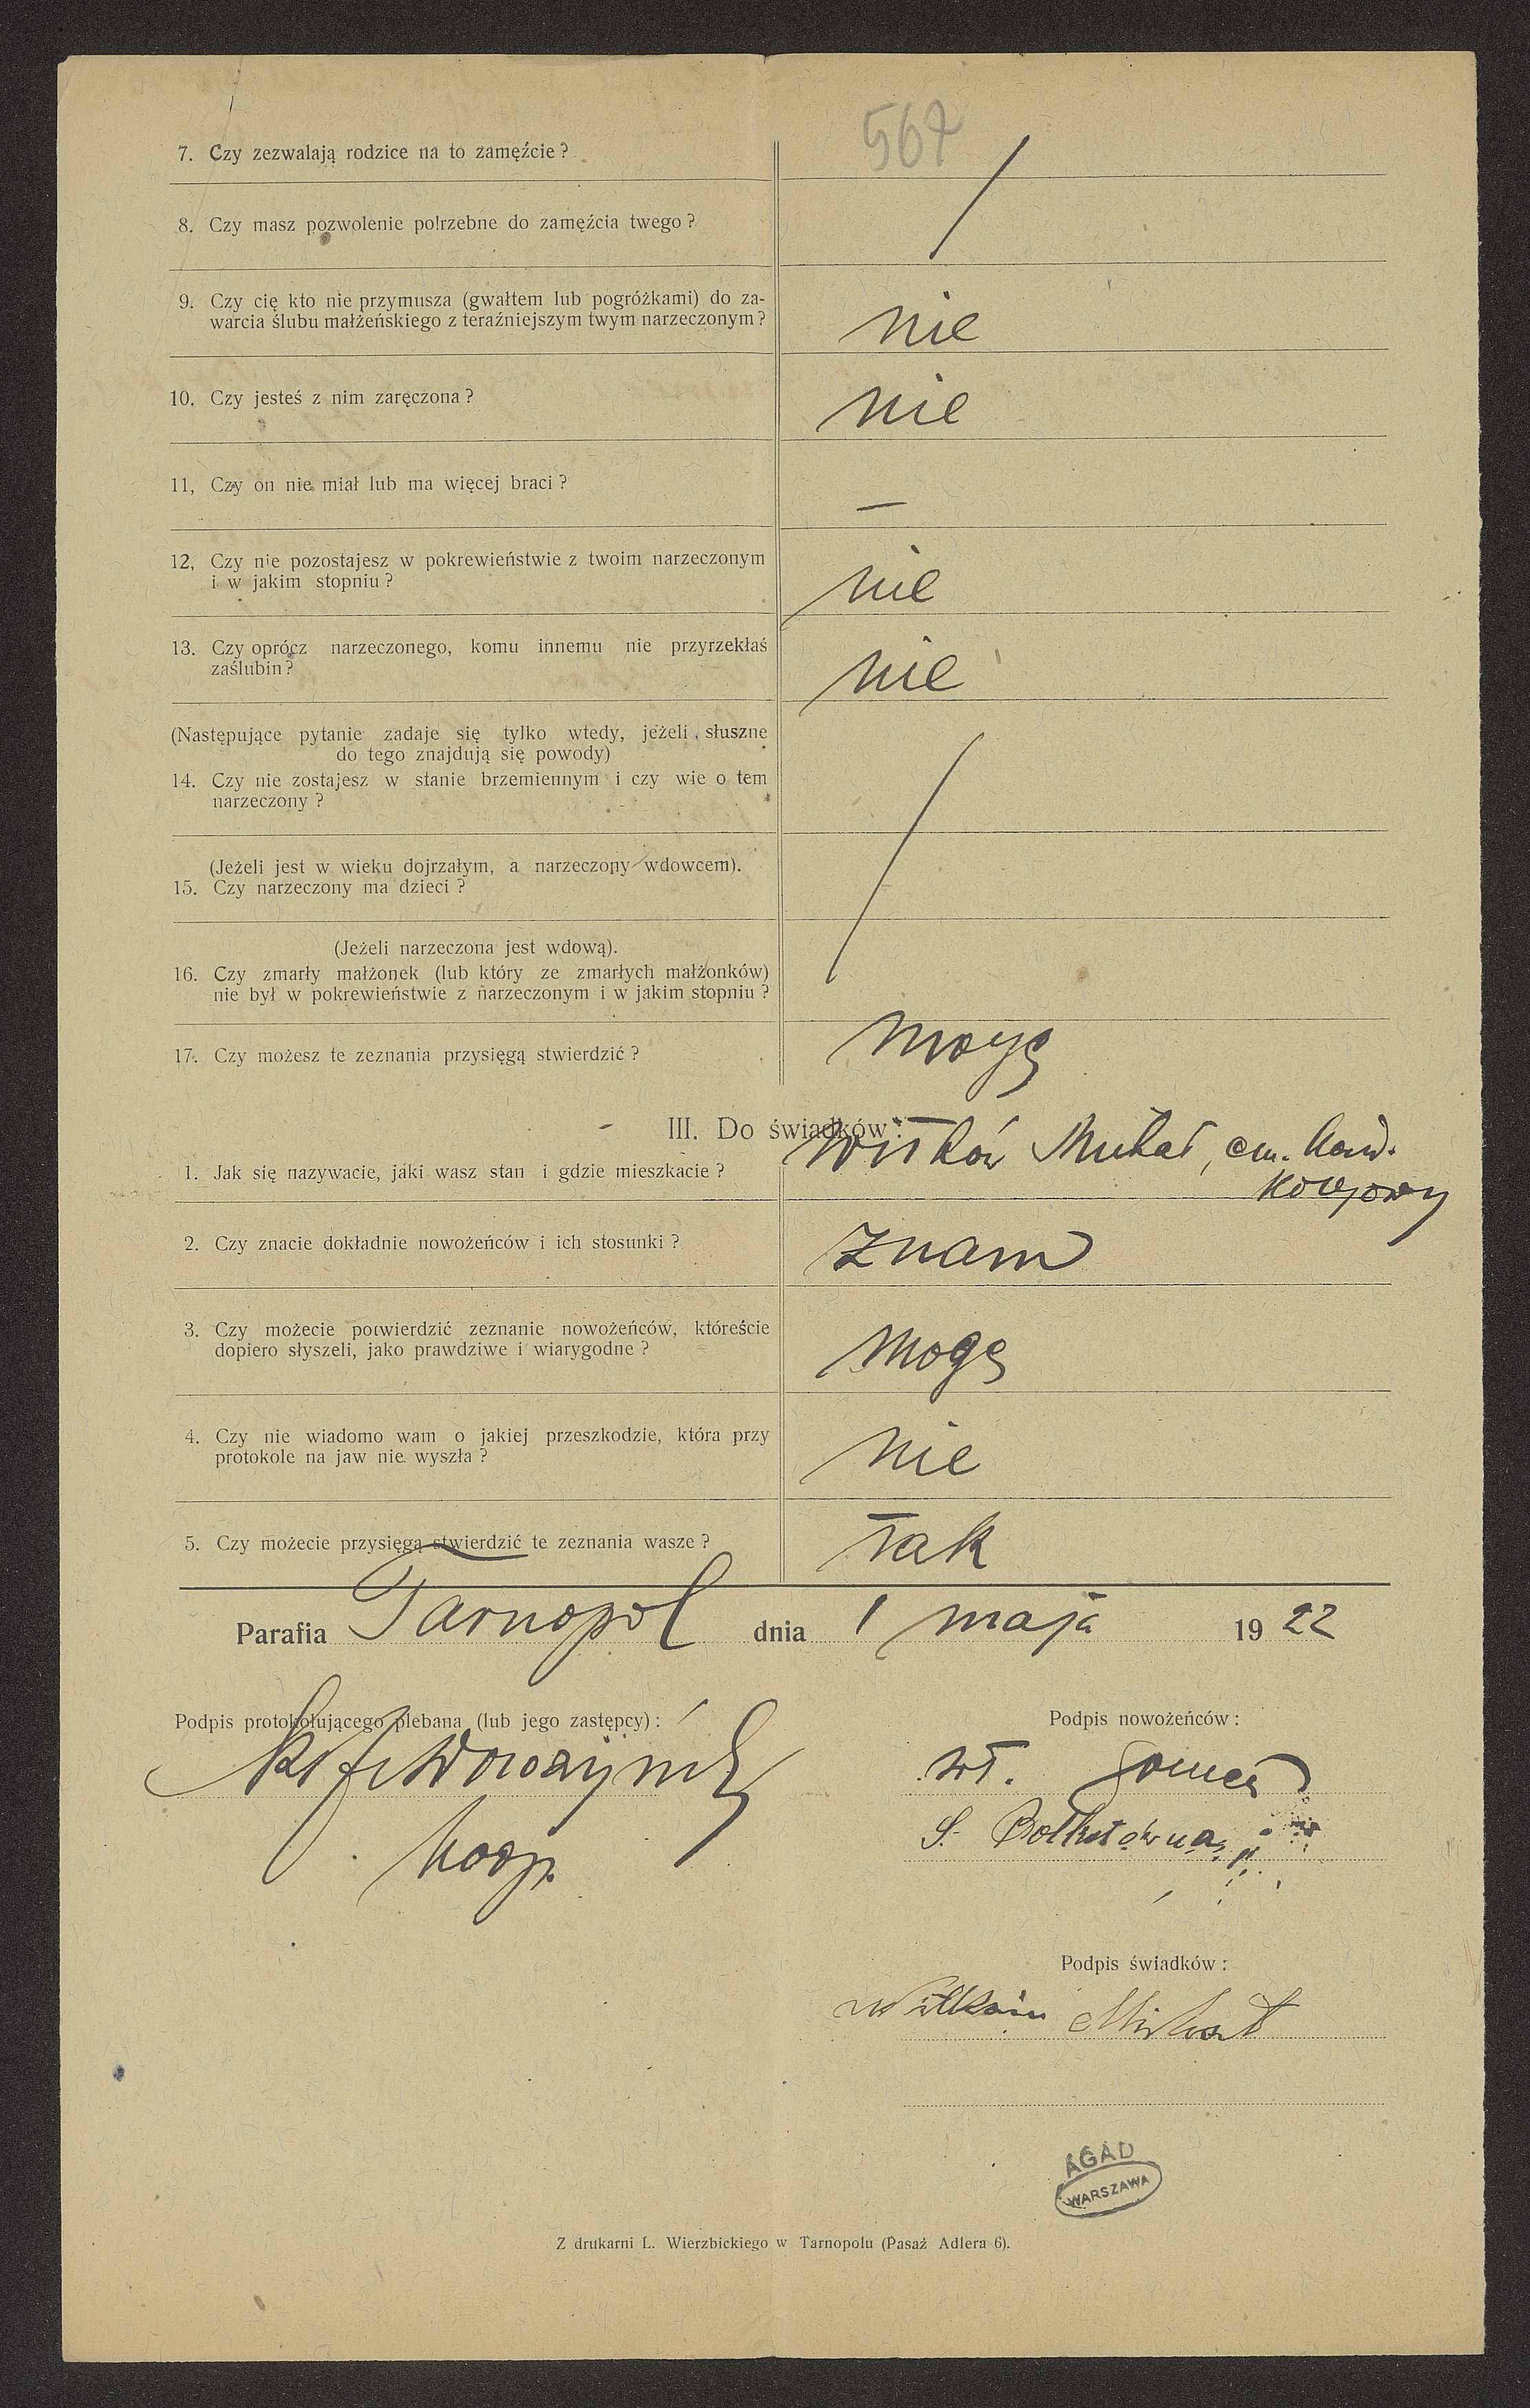 567
7. Czy zezwalają rodzice na to zamęźcie?
8. Czy masz pozwolenie potrzebne do zamęźcia twego?
9. Czy cię kto nie przymusza (gwałtem lub pogróżkami) do za-
warcia ślubu małżeńskiego z teraźniejszym twym narzeczonym?
nie
10. Czy jesteś z nim zaręczona?
nie
11, Czy on nie miał lub ma więcej braci?
—
12, Czy nie pozostajesz w pokrewieństwie z twoim narzeczonym
i w jakim stopniu?
nie
13. Czy oprócz narzeczonego, komu innemu nie przyrzekłaś
zaślubin?
nie
(Następujące pytanie zadaje się tylko wtedy, jeżeli słuszne
do tego znajdują się powody)
14. Czy nie zostajesz w stanie brzemiennym i czy wie o tem
narzeczony?
(Jeżeli jest w wieku dojrzałym, a narzeczony wdowcem).
15. Czy narzeczony ma dzieci?
(Jeżeli narzeczona jest wdową).
16. Czy zmarły małżonek (lub który ze zmarłych małżonków)
nie był w pokrewieństwie z narzeczonym i w jakim stopniu?
17. Czy możesz te zeznania przysięgą stwierdzić?
mogę
III. Do świadków:
1. Jak się nazywacie, jaki wasz stan i gdzie mieszkacie?
Witków Michał, em.
kolejowy
2. Czy znacie dokładnie nowożeńców i ich stosunki?
znam
3. Czy możecie potwierdzić zeznanie nowożeńców, któreście
dopiero słyszeli, jako prawdziwe i wiarygodne?
mogę
4. Czy nie wiadomo wam o jakiej przeszkodzie, która przy
protokole na jaw nie wyszła?
nie
5. Czy możecie przysięgą stwierdzić te zeznania wasze?
tak
Parafia Tarnopol dnia 1 maja 1922
Podpis protokołującego plebana (lub jego zastępcy):
Podpis nowożeńców:
Wł.
koop.
S.
Podpis świadków:
Michał
AGAD
WARSZAWA
Z drukarni L. Wierzbickiego w Tarnopolu (Pasaż Adlera 6).